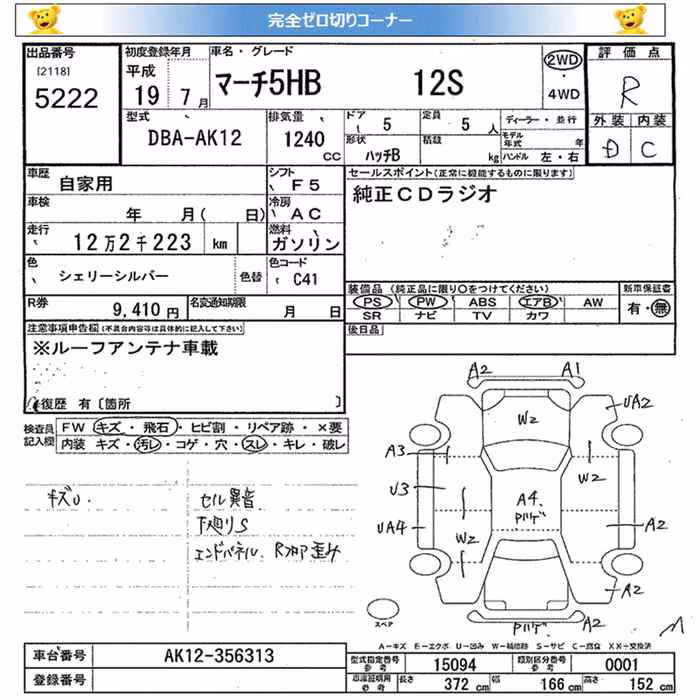 完全ゼロ切りコーナー
出品番号 初度登録年月 車名・グレード 評価点
[2118] 平成 マーチ5HB 12S 2WD R
5222 19 7月 ・4WD
型式 排気量 ドア 定員 ディーラー・並行 外装 内装
DBA-AK12 1240 CC 5 5人 モデル年式 年 D C
形状 積載
ハッチB kg ハンドル 左・右
車歴 シフト セールスポイント(正常に機能するものに限ります)
自家用 F5 純正CDラジオ
車検 冷房
年 月( 日) AC
走行 燃料
12万2千223 km ガソリン
色 色コード
シェリーシルバー 色替 C41
装備品(純正品に限り○をつけてください) 新車保証書
R券 名変通知期限 PS PW ABS エアB AW 有・無
9,410円 月 日 SR ナビ TV カワ
注意事項申告欄(不具合内容等は具体的に記入して下さい) 後日品
※ルーフアンテナ車載
修復歴 有〔箇所 〕
検査員記入欄 FW キズ・飛石・ヒビ割・リペア跡・×要
内装 キズ・汚れ・コゲ・穴・スレ・キレ・破レ
キズU. セル異音
下廻りS
エンドパネル、Rフロア歪み
A2 A1
W2 UA2
A3 W2
U3 A4.
UA4 W2 A2
A2
A2
スペア
A−キズ E−エクボ U−凹み W−補修跡 S−サビ C−腐食 XX−交換済
車台番号 AK12-356313 型式指定番号 参考 15094 類別区分番号 参考 0001
登録番号 車庫証明用 参考 長さ 372 cm 幅 166 cm 高さ 152 cm